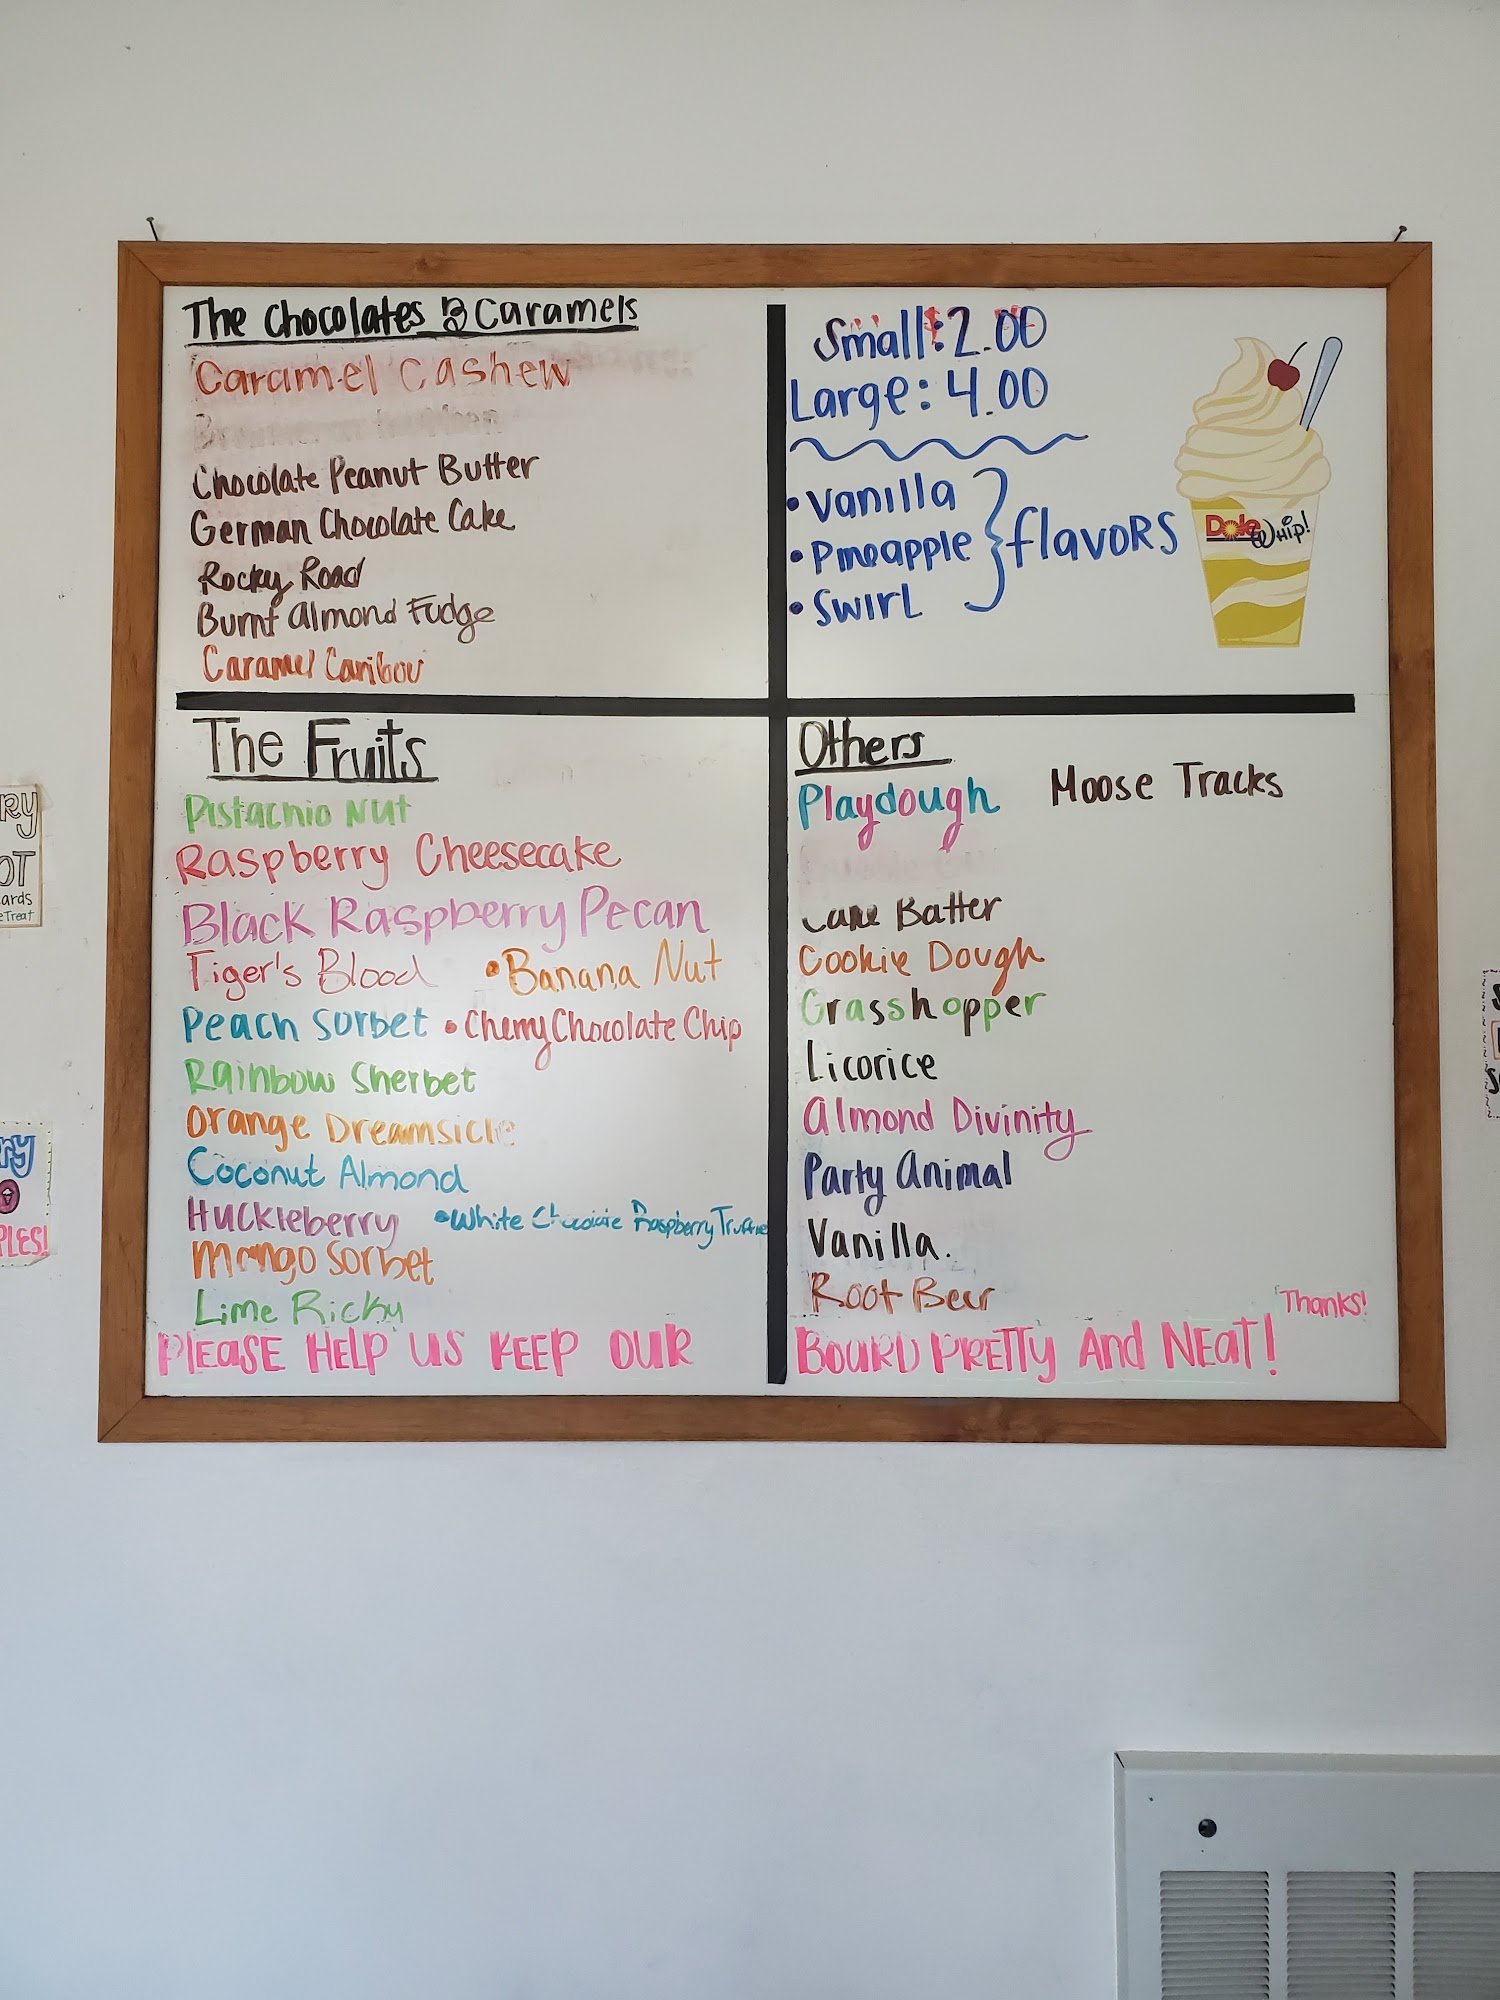 The Chocolates & Caramels
Caramel Cashew
Chocolate Peanut Butter
German Chocolate Cake
Rocky Road
Burnt Almond Fudge
Caramel Caribou
Small: 2.00
Large: 4.00
• Vanilla
• Pineapple
• Swirl
flavors
Dole Whip!
The Fruits
Pistachio Nut
Raspberry Cheesecake
Black Raspberry Pecan
Tiger's Blood • Banana Nut
Peach Sorbet • Cherry Chocolate Chip
Rainbow Sherbet
Orange Dreamsicle
Coconut Almond
Huckleberry • White Chocolate Raspberry Truffle
Mango Sorbet
Lime Ricky
Others
Playdough Moose Tracks
Cake Batter
Cookie Dough
Grasshopper
Licorice
Almond Divinity
Party Animal
Vanilla.
Root Beer
PLEASE HELP US KEEP OUR BOARD PRETTY AND NEAT! Thanks!
RY
OT
ards
eTreat
ry
PLES!